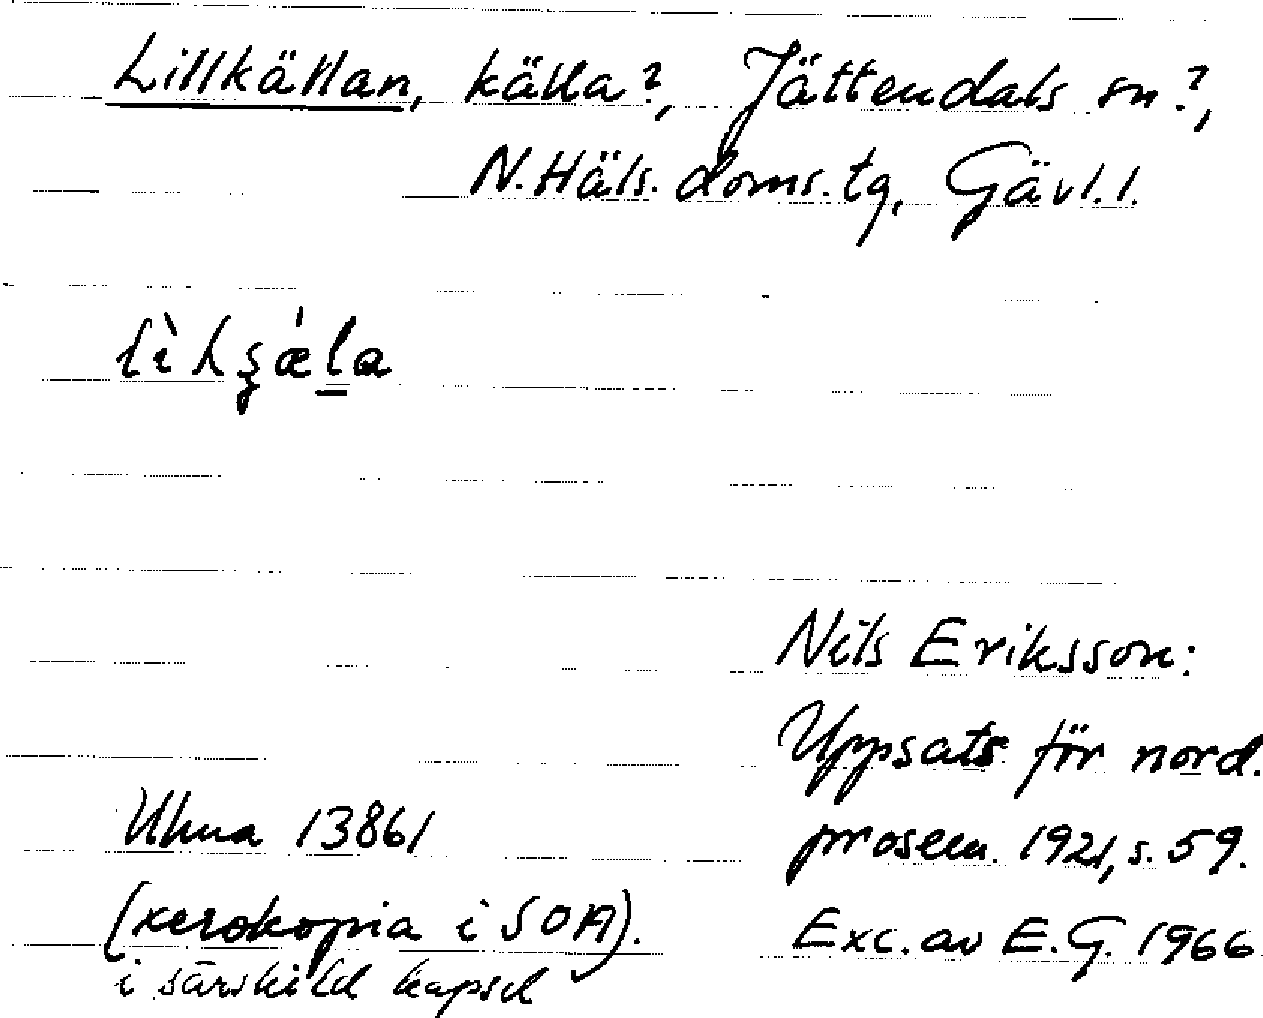 Lillkällan, källa?, Jättendals sn?,
N. Häls. doms. tg, Gävl. l.
Nils Eriksson:
Uppsats för nord.
Uhua 13861
prosem. 1921, s. 59.
(xerokopia i SOA).
Exc. av E.G. 1966
i särskild kapsel